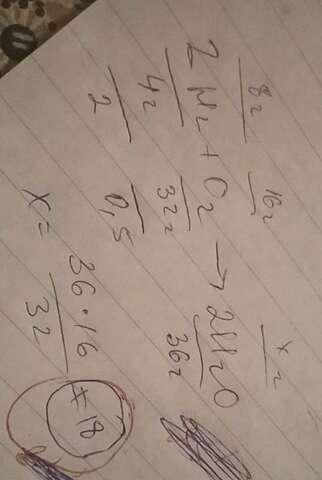 8г 16г xг
2H₂ + O₂ → 2H₂O
4г 32г 36г
2 0,5
x = 36·16 / 32 = 18